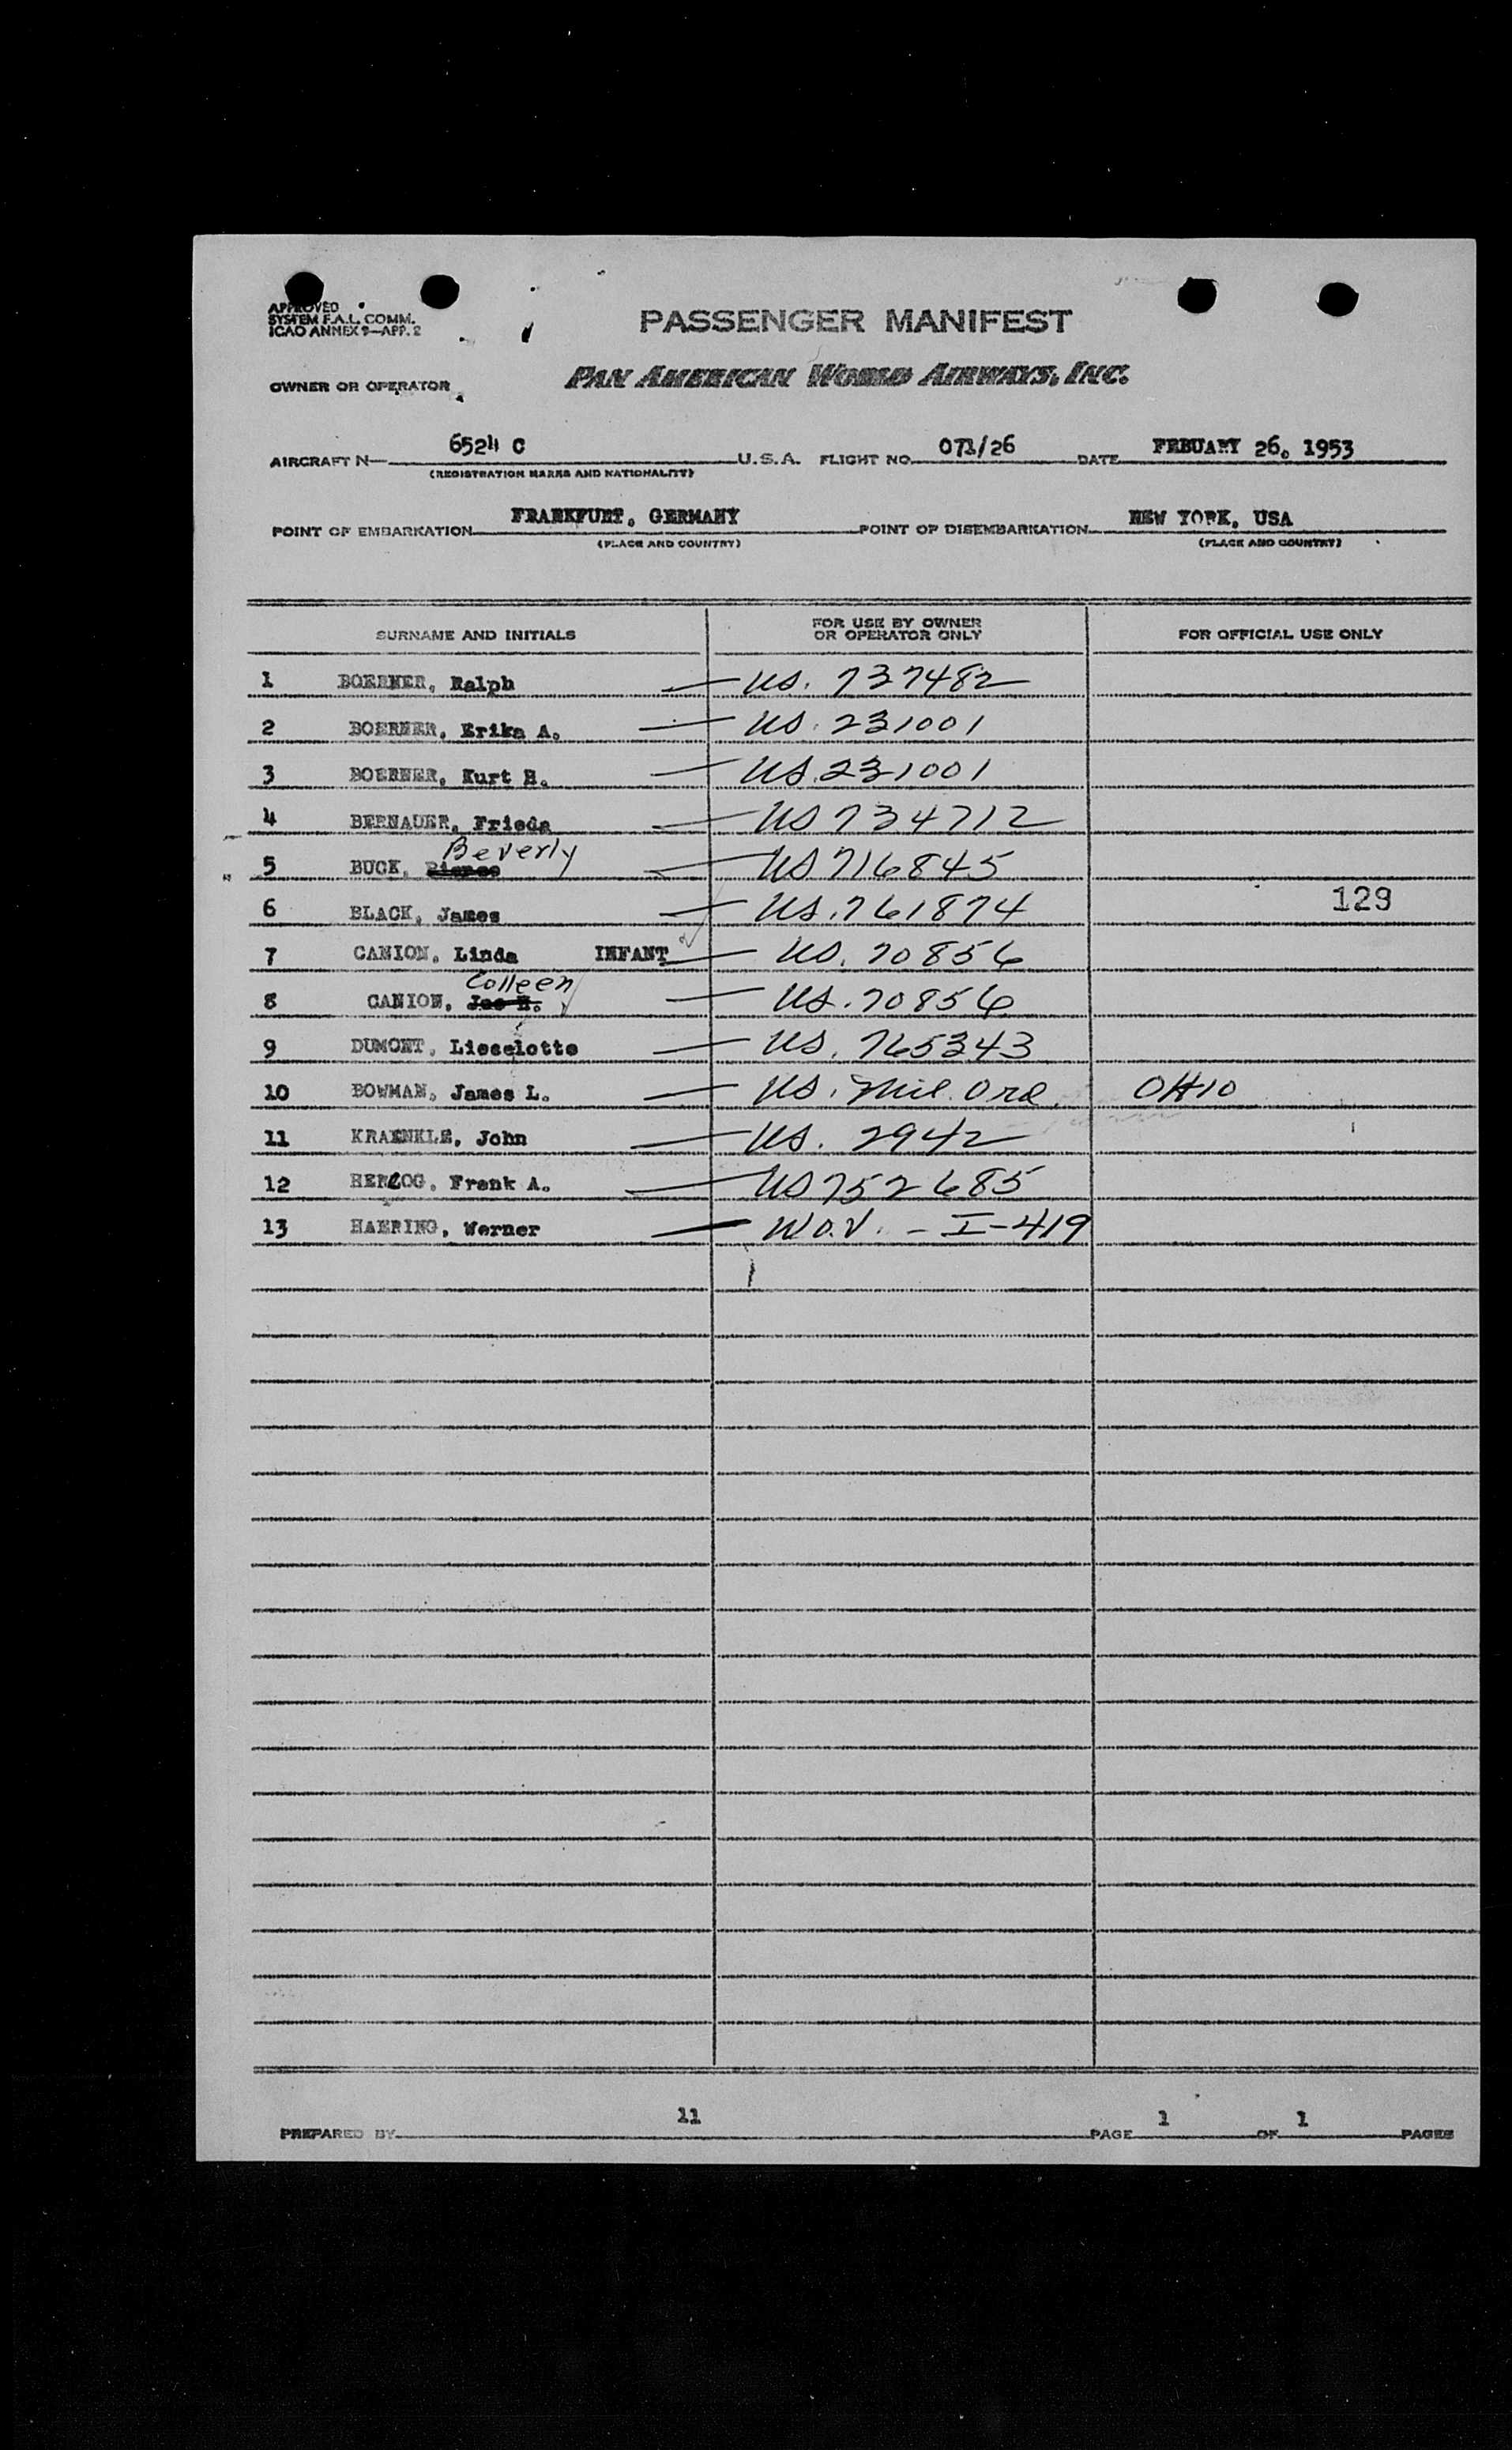 APPROVED
SYSTEM F.A.L. COMM.
ICAO ANNEX 9—APP. 2
PASSENGER MANIFEST
OWNER OR OPERATOR PAN AMERICAN WORLD AIRWAYS, INC.
AIRCRAFT N— 6524 C U.S.A. FLIGHT NO. 071/26 DATE FEBUARY 26, 1953
(REGISTRATION MARKS AND NATIONALITY)
POINT OF EMBARKATION FRANKFURT, GERMANY POINT OF DISEMBARKATION NEW YORK, USA
(PLACE AND COUNTRY) (PLACE AND COUNTRY)
SURNAME AND INITIALS FOR USE BY OWNER OR OPERATOR ONLY FOR OFFICIAL USE ONLY
1 BOERNER, Ralph — US. 737482
2 BOERNER, Erika A. — US. 231001
3 BOERNER, Kurt H. — US. 231001
4 BERNAUER, Frieda — US 734712
5 BUCK, Beverly — US 716845
6 BLACK, James — US. 761874 129
7 CANION, Linda INFANT — US. 70856
8 CANION, Joe H. Colleen — US. 70856
9 DUMONT, Lieselotte — US. 765343
10 BOWMAN, James L. — US. Mil. Ord. OHIO
11 KRAENKLE, John — US. 2942
12 HERZOG, Frank A. — US 752685
13 HAERING, Werner — W.O.V. – I-419
PREPARED BY 11 PAGE 1 OF 1 PAGES